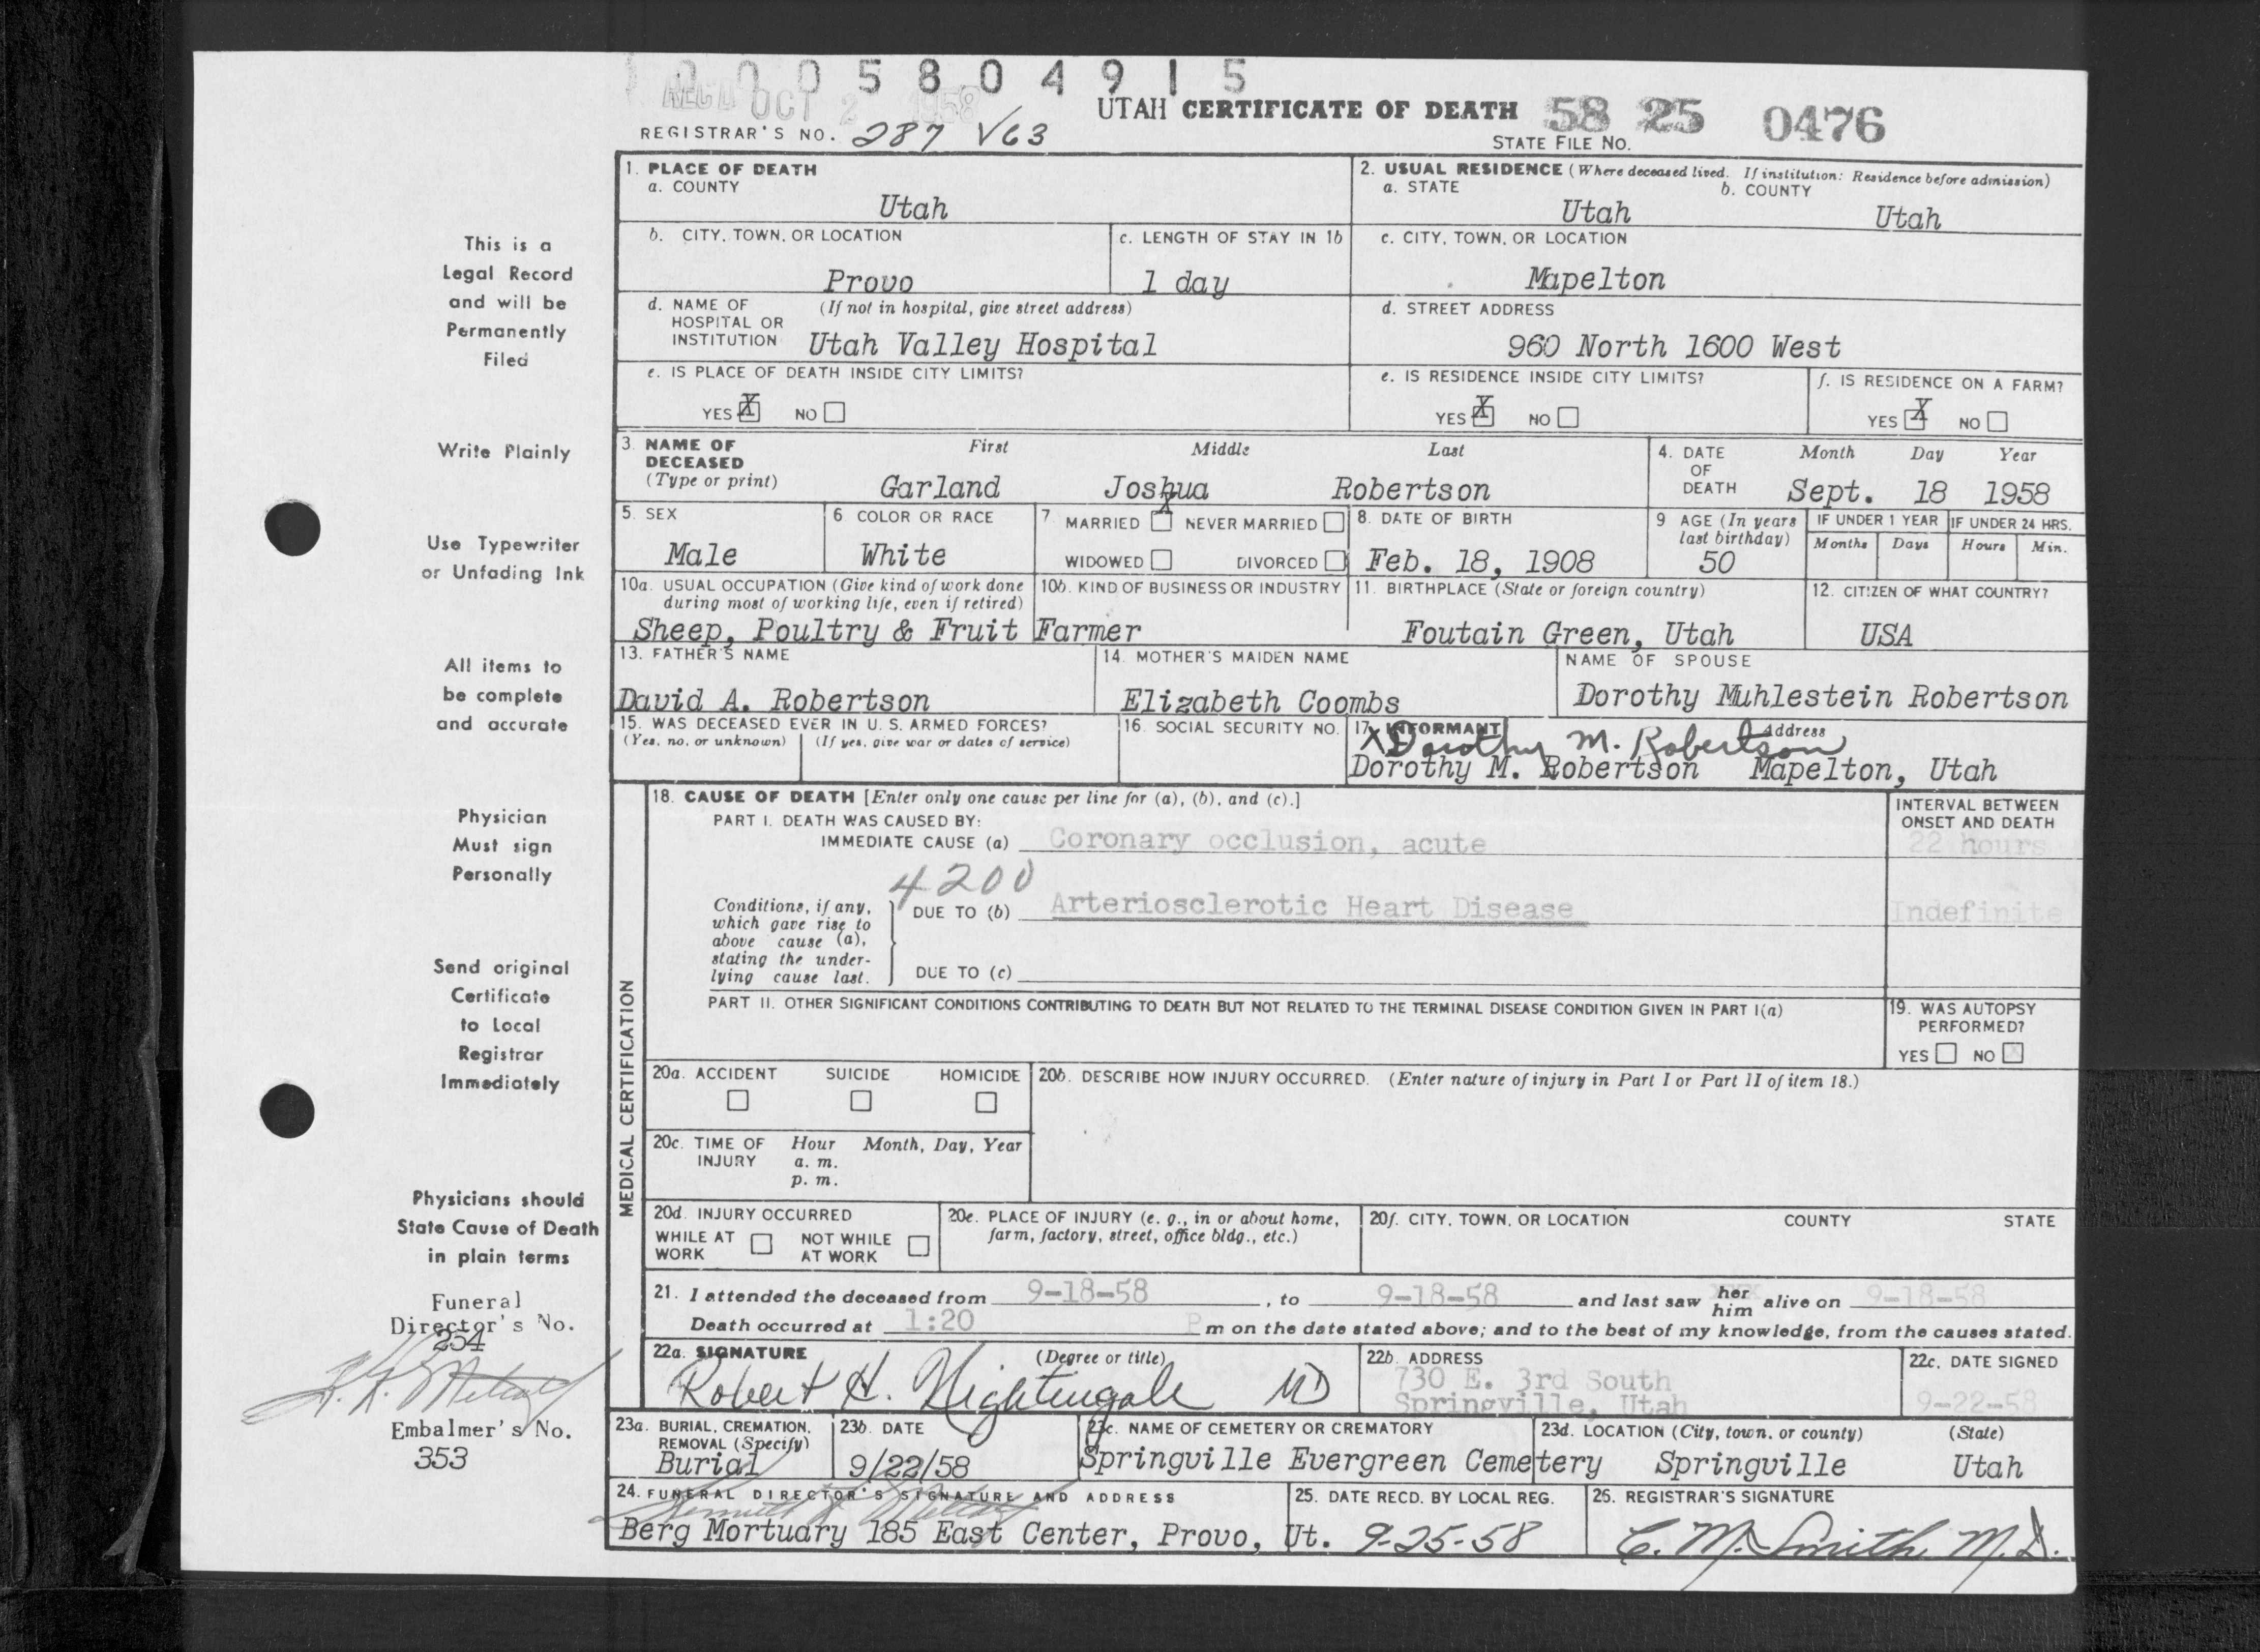 1 0 0 0 5 8 0 4 9 1 5
REC'D OCT 2 1958
UTAH CERTIFICATE OF DEATH 58 25 0476
REGISTRAR'S NO. 287 V63
STATE FILE NO.
1. PLACE OF DEATH
a. COUNTY
Utah
2. USUAL RESIDENCE (Where deceased lived. If institution: Residence before admission)
a. STATE b. COUNTY
Utah Utah
b. CITY, TOWN, OR LOCATION
Provo
c. LENGTH OF STAY IN 1b
1 day
c. CITY, TOWN, OR LOCATION
Mapelton
d. NAME OF (If not in hospital, give street address)
HOSPITAL OR
INSTITUTION Utah Valley Hospital
d. STREET ADDRESS
960 North 1600 West
e. IS PLACE OF DEATH INSIDE CITY LIMITS?
YES X NO
e. IS RESIDENCE INSIDE CITY LIMITS?
YES X NO
f. IS RESIDENCE ON A FARM?
YES X NO
3. NAME OF First Middle Last
DECEASED
(Type or print) Garland Joshua Robertson
4. DATE Month Day Year
OF
DEATH Sept. 18 1958
5. SEX
Male
6 COLOR OR RACE
White
7 MARRIED X NEVER MARRIED
WIDOWED DIVORCED
8. DATE OF BIRTH
Feb. 18, 1908
9 AGE (In years
last birthday)
50
IF UNDER 1 YEAR IF UNDER 24 HRS.
Months Days Hours Min.
10a. USUAL OCCUPATION (Give kind of work done
during most of working life, even if retired)
10b. KIND OF BUSINESS OR INDUSTRY
Sheep, Poultry & Fruit Farmer
11. BIRTHPLACE (State or foreign country)
Foutain Green, Utah
12. CITIZEN OF WHAT COUNTRY?
USA
13. FATHER'S NAME
David A. Robertson
14. MOTHER'S MAIDEN NAME
Elizabeth Coombs
NAME OF SPOUSE
Dorothy Muhlestein Robertson
15. WAS DECEASED EVER IN U. S. ARMED FORCES?
(Yes, no, or unknown) (If yes, give war or dates of service)
16. SOCIAL SECURITY NO.
17. INFORMANT Address
X Dorothy M. Robertson
Dorothy M. Robertson Mapelton, Utah
MEDICAL CERTIFICATION
18. CAUSE OF DEATH [Enter only one cause per line for (a), (b), and (c).]
PART I. DEATH WAS CAUSED BY:
IMMEDIATE CAUSE (a) Coronary occlusion, acute
INTERVAL BETWEEN
ONSET AND DEATH
22 hours
4200
Conditions, if any,
which gave rise to
above cause (a),
stating the under-
lying cause last.
DUE TO (b) Arteriosclerotic Heart Disease
Indefinite
DUE TO (c)
PART II. OTHER SIGNIFICANT CONDITIONS CONTRIBUTING TO DEATH BUT NOT RELATED TO THE TERMINAL DISEASE CONDITION GIVEN IN PART I(a)
19. WAS AUTOPSY
PERFORMED?
YES NO X
20a. ACCIDENT SUICIDE HOMICIDE
20b. DESCRIBE HOW INJURY OCCURRED. (Enter nature of injury in Part I or Part II of item 18.)
20c. TIME OF Hour Month, Day, Year
INJURY a. m.
p. m.
20d. INJURY OCCURRED
WHILE AT NOT WHILE
WORK AT WORK
20e. PLACE OF INJURY (e. g., in or about home,
farm, factory, street, office bldg., etc.)
20f. CITY, TOWN, OR LOCATION COUNTY STATE
21. I attended the deceased from 9-18-58, to 9-18-58 and last saw her him alive on 9-18-58
Death occurred at 1:20 P m on the date stated above; and to the best of my knowledge, from the causes stated.
22a. SIGNATURE (Degree or title)
Robert H. Nightengale MD
22b. ADDRESS
730 E. 3rd South
Springville, Utah
22c. DATE SIGNED
9-22-58
23a. BURIAL, CREMATION,
REMOVAL (Specify)
Burial
23b. DATE
9/22/58
23c. NAME OF CEMETERY OR CREMATORY
Springville Evergreen Cemetery
23d. LOCATION (City, town, or county) (State)
Springville Utah
24. FUNERAL DIRECTOR'S SIGNATURE AND ADDRESS
Berg Mortuary 185 East Center, Provo, Ut.
25. DATE RECD. BY LOCAL REG.
9-25-58
26. REGISTRAR'S SIGNATURE
C. M. Smith, M.D.
This is a
Legal Record
and will be
Permanently
Filed
Write Plainly
Use Typewriter
or Unfading Ink
All items to
be complete
and accurate
Physician
Must sign
Personally
Send original
Certificate
to Local
Registrar
Immediately
Physicians should
State Cause of Death
in plain terms
Funeral
Director's No.
254
Embalmer's No.
353